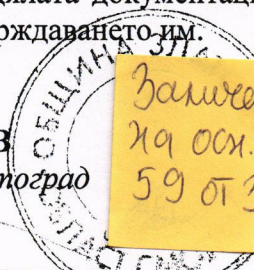 цялата документац
ърждаването им.
В
тоград
ОБЩИНА ЗЛА
Заличе
на осн.
59 от З